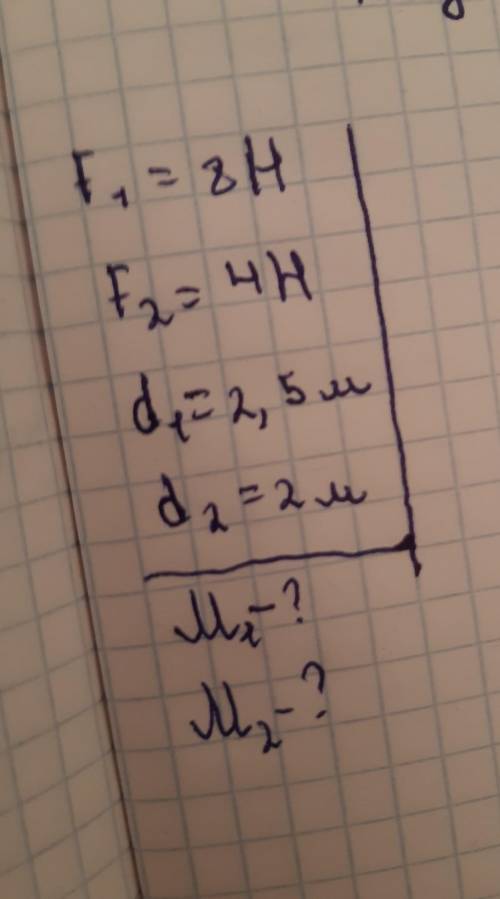 F₁ = 8Н
F₂ = 4Н
d₁ = 2,5 м
d₂ = 2 м
M₁ - ?
M₂ - ?